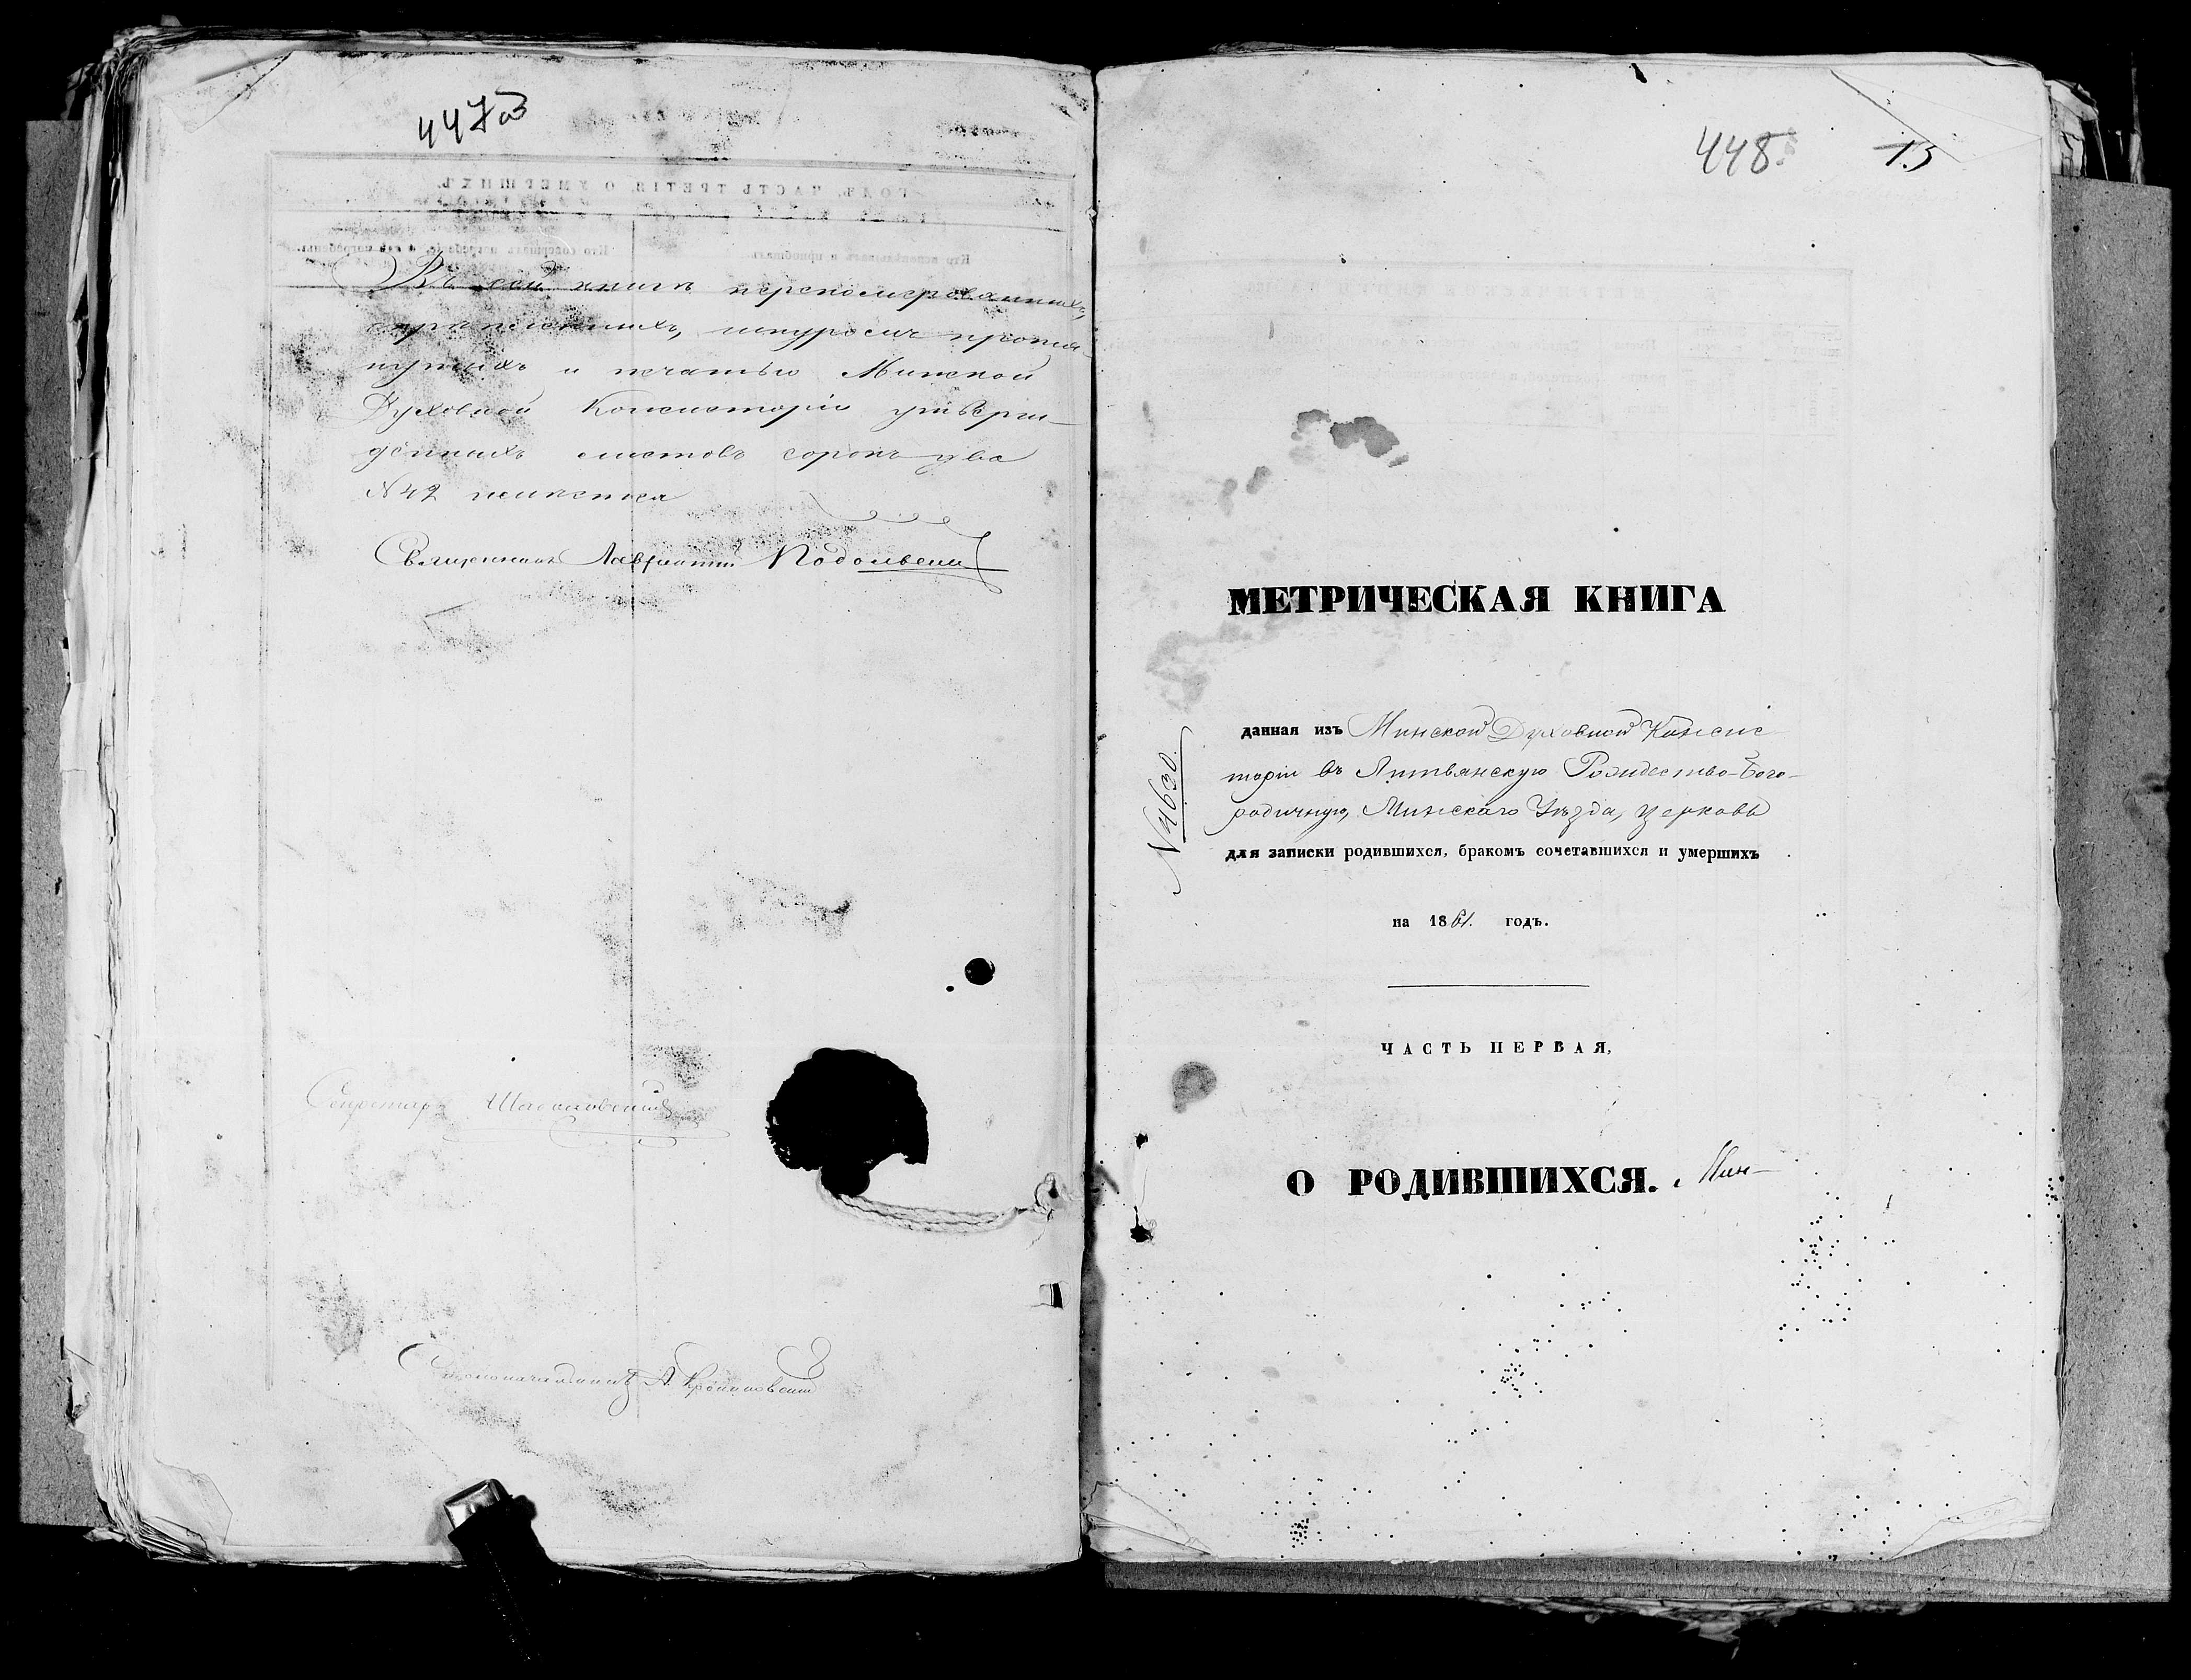 447об
Въ сей книгѣ перенумерованныхъ,
скрѣпленныхъ, шнуромъ протя-
нутыхъ и печатью Минской
Духовной Консисторіи утверж-
денныхъ листовъ сорокъ два
№ 42 имѣется
Священникъ Лаврентій
Секретарь
Столоначальникъ А.
448. 15
МЕТРИЧЕСКАЯ КНИГА
данная изъ Минской Духовной Консис
торіи въ Литвянскую Рождество-Бого-
родичную, Минскаго Уѣзда, церковь
для записки родившихся, бракомъ сочетавшихся и умершихъ
на 1861. годъ.
№ 4630.
ЧАСТЬ ПЕРВАЯ,
О РОДИВШИХСЯ. Мин-